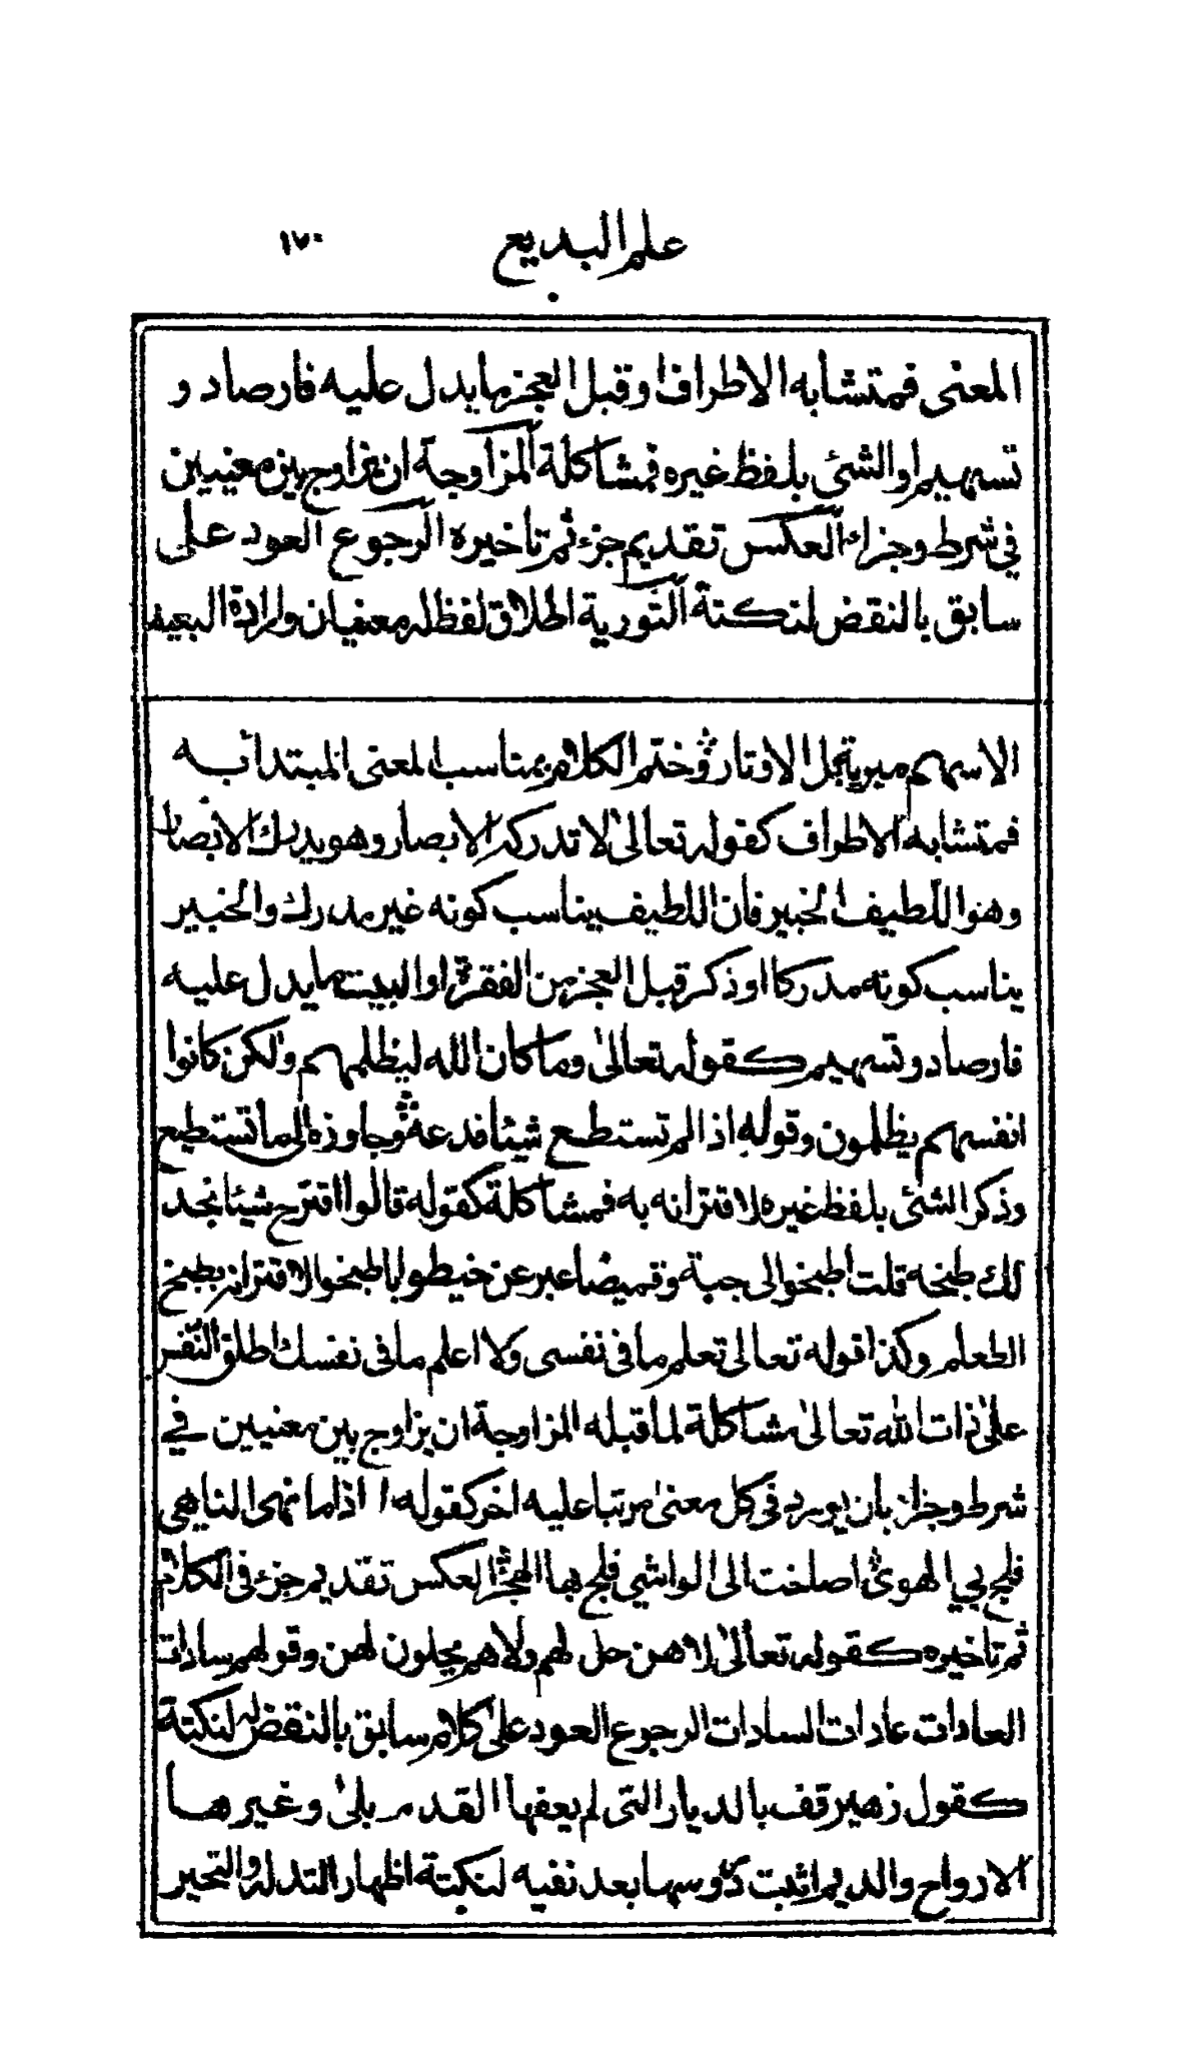 علم البديع ١٧٠
المعنى فمتشابه الاطراف او قبل العجز ما يدل عليه فارصاد و
تسهيم او الشئ بلفظ غيره فمشاكلة المزاوجة ان يزاوج بين معنيين
في شرط وجزاء العكس تقديم جزء ثم تاخيره الرجوع العود على
سابق بالنقض لنكتة التورية اطلاق لفظ له معنيان وارادة البعيد
الاسهم مبرية بل الاوتار و ختم الكلام بمناسب المعنى المبتدأ به
فمتشابه الاطراف كقوله تعالى لا تدركه الابصار وهو يدرك الابصار
وهو اللطيف الخبير فان اللطيف يناسب كونه غير مدرك والخبير
يناسب كونه مدركا او ذكر قبل العجز من الفقرة او البيت ما يدل عليه
فارصاد وتسهيم كقوله تعالى وما كان الله ليظلمهم ولكن كانوا
انفسهم يظلمون وقوله اذا لم تستطع شيئا فدعه وجاوزه الى ما تستطيع
وذكر الشئ بلفظ غيره لاقترانه به فمشاكلة كقوله قالوا اقترح شيئا نجد
لك طبخه قلت اطبخوا لى جبة وقميصا عبر عن خيطوا باطبخوا لاقترانه بطبخ
الطعام وكذا قوله تعالى تعلم ما فى نفسى ولا اعلم ما فى نفسك اطلق النفس
على ذات الله تعالى مشاكلة لما قبله المزاوجة ان يزاوج بين معنيين في
شرط وجزاء بان يورد فى كل معنى مرتبا عليه اخر كقوله اذا ما نهى الناهي
فلج بي الهوى اصاخت الى الواشي فلج بها الهجر العكس تقديم جزء فى الكلام
ثم تاخيره كقوله تعالى لا هن حل لهم ولا هم يحلون لهن وقولهم سادات
العادات عادات السادات الرجوع العود على كلام سابق بالنقض له لنكتة
كقول زهير قف بالديار التى لم يعفها القدم بلى وغيرها
الارواح والديم اثبت دروسها بعد نفيه لنكتة اظهار التدله والتحير